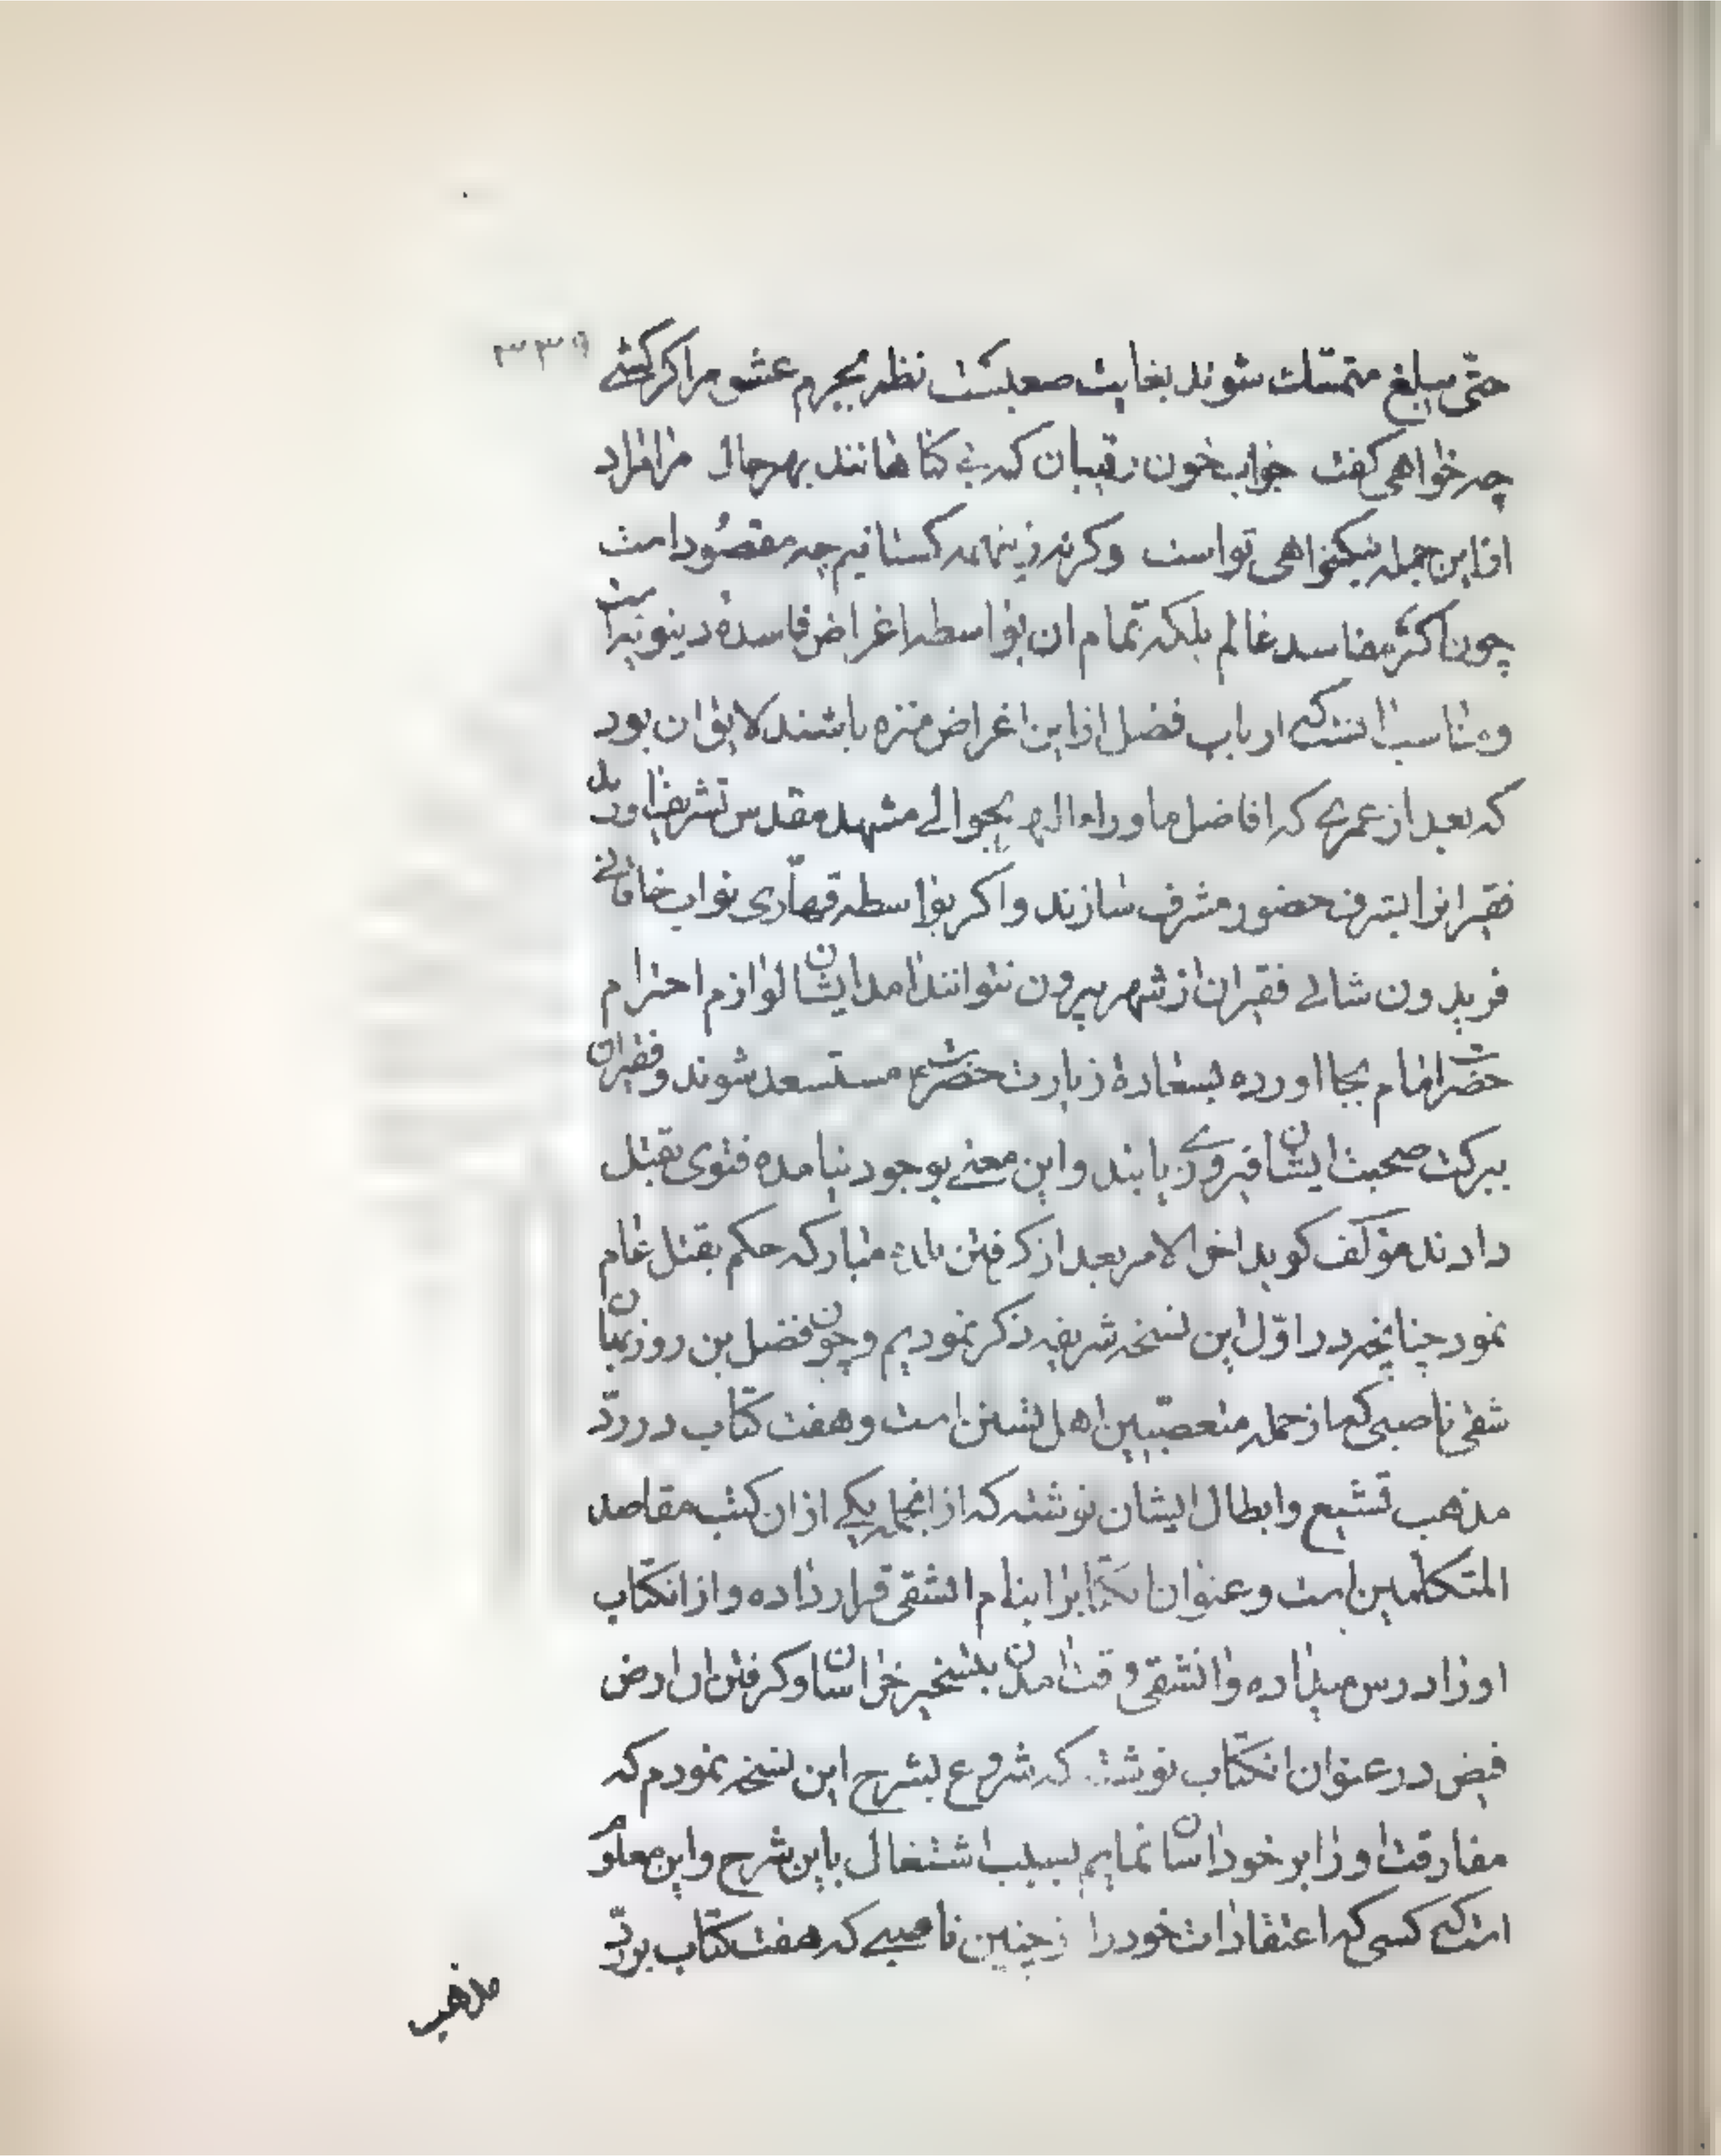 ۳۳۹
حتی مبلغ متمسک شوند بغایت صعبست نظر بجرم عشق مرا کر کشی
چه خواهی کفت جواب خون رقیبان که بی کناهانند بهر حال مرا مراد
ازاین جمله نیکخواهی تواست وکرنه زینهمه کستاخیم چه مقصود است
چون اکثر مفاسد عالم بلکه تمام ان بواسطه اغراض فاسدۀ دینویه است
ومناسب انستکه ارباب فضل ازاین اغراض منزه باشند لایق ان بود
که بعد از عمری که افاضل ماوراءالنهر بحوالی مشهد مقدس تشریف اورند
فقیرانرا بشرف حضور مشرف سازند واکر بواسطه قهاری نواب خاقانی
فریدون شانی فقیران از شهر بیرون نتوانند امد ایشان لوازم احترام
حضرت امام بجا اورده بسعادة زیارت حضرتش مستسعد شوند وفقیران
ببرکت صحبت ایشان فیروزی یابند واین معنی بوجود نیامده فتوی بقتل
دادند مؤلف کوید اخر الامر بعد از کرفتن بلده مبارکه حکم بقتل عام
نمود چنانچه در اوّل این نسخه شریفه ذکر نمودیم وچون فضل بن روزبهان
شقی ناصبی که از جمله متعصّبین اهل تسنن است وهفت کتاب در ردّ
مذهب تشیع وابطال ایشان نوشته که از انجمله یکی ازان کتب مقاصد
المتکلمین است وعنوان انکتابرا بنام انشقی قرار داده وازانکتاب
اورا درس میداده وانشقی وقت امدن بتسخیر خراسان وکرفتن ان ارض
فیض در عنوان انکتاب نوشته که شروع بشرح این نسخه نمودم که
مفارقت اورا بر خود اسان نمایم بسبب اشتغال باین شرح واین معلوم
استکه کسی که اعتقادات خود را زچنین ناصبی که هفت کتاب بردّ
مذهب